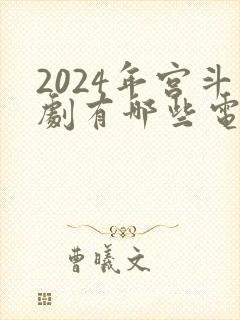 2024年宫斗
劇有哪些電
曹曦文